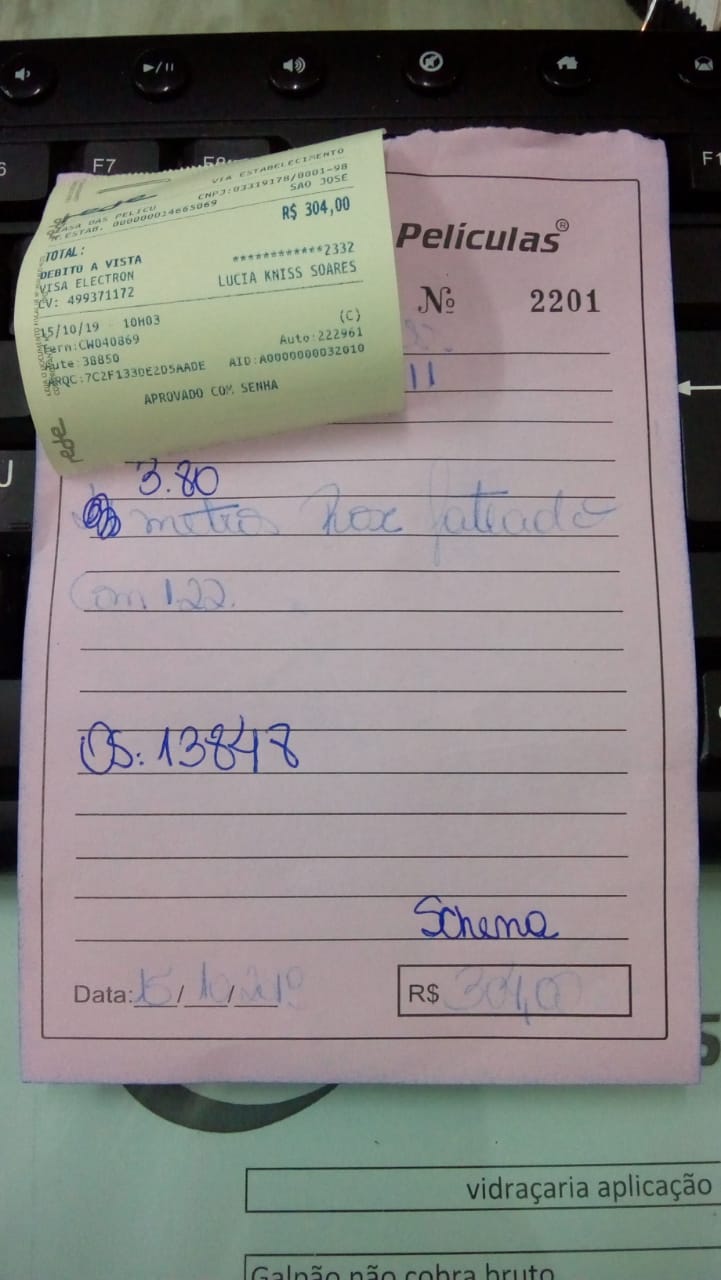 F7
F1
rede
VIA ESTABELECIMENTO
CNPJ:03319178/0001-98
CASA DAS PELICU SAO JOSE
N.ESTAB. 000000014665069
TOTAL: R$ 304,00
DEBITO A VISTA
VISA ELECTRON ************2332
CV: 499371172 LUCIA KNISS SOARES
15/10/19 10H03 (C)
Term:CW040869 Auto:222961
Lote:38850
ARQC:7C2F133DE2D5AADE AID:A0000000032010
APROVADO COM SENHA
rede
Películas®
Nº 2201
11
3.80
metros fateado
Com 1.22.
OS: 13848
Schena
Data: 15/10/2019 R$ 304,00
vidraçaria aplicação
Galpão não cobra bruto